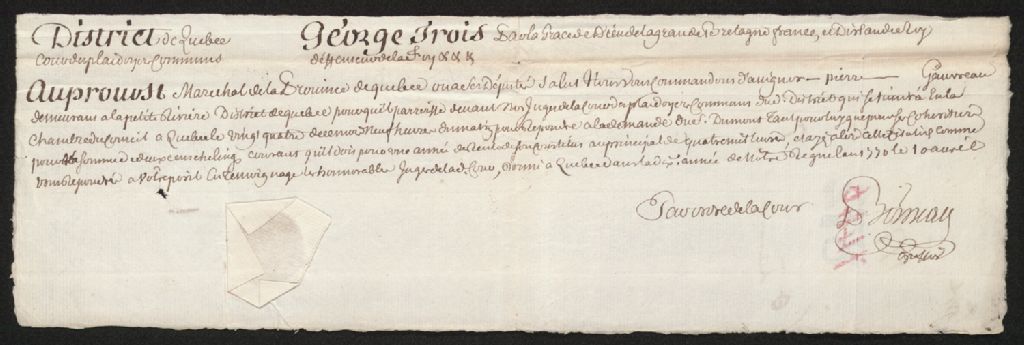 District de Quebec George Trois Par la Grace de Dieu de la grande Bretagne, france, et D'Irlande Roy
Cour du plaidoyé Communs deffenseur de la Foy &&&
Au provost Marechal de la Province de quebec ou a ses Députés Salut Nous vous Commandons d'asigner pierre Gauvreau
demeurant a la petite Riviere District de quebec pour qu'il paroisse devant Nos Juges de la Cour du plaidoyer Communs du d. District qui se tiendra En la
Chambre du Conseil a Quebec le Vingt quatre de ce mois Neuf heures du matin pour Repondre a la demande du S. Dumont tant pour luy que pour ses Coheritiers
pour la somme de deux cent cheling courant qu'il dois pour une année de Rente de Constitut au principal de quatre mil livres
vous Repondré a vos perils En temoignage les honorable Juges de la d. Cour, donné a Quebec dans la dix. année de Nôtre Regne le 1770 le 10 avril
Par ordre de la Cour